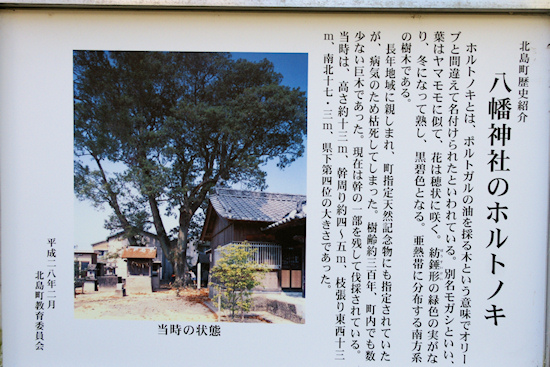 北島町歴史紹介
八幡神社のホルトノキ
ホルトノキとは、ポルトガルの油を採る木という意味でオリー
ブと間違えて名付けられたといわれている。別名モガシといい、
葉はヤマモモに似て、花は穂状に咲く。紡錘形の緑色の実がな
り、冬になって熟し、黒碧色となる。亜熱帯に分布する南方系
の樹木である。
長年地域に親しまれ、町指定天然記念物にも指定されていた
が、病気のため枯死してしまった。樹齢約三百年、町内でも数
少ない巨木であった。現在は幹の一部を残して伐採されている。
当時は、高さ約十三m、幹周り約四〜五m、枝張り東西十三
m、南北十七・三m、県下第四位の大きさであった。
当時の状態
平成二八年二月
北島町教育委員会